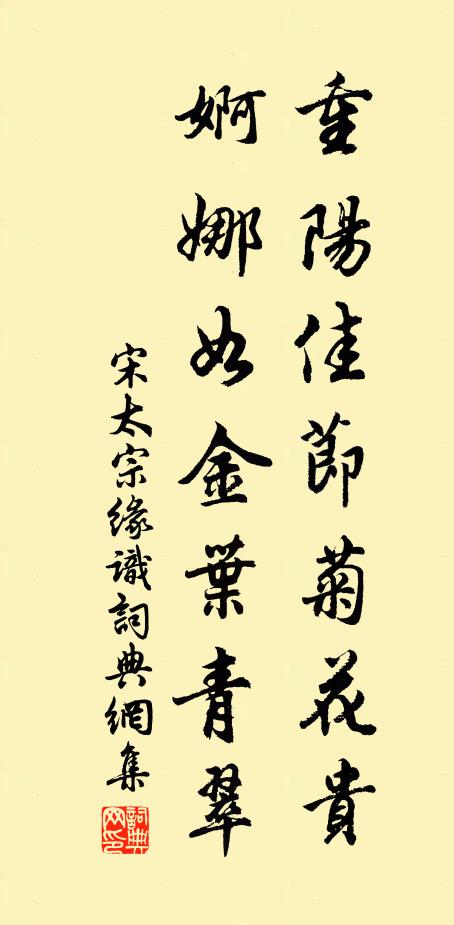 重陽佳節菊花貴
婀娜如金葉青翠
宋太宗緣識詞典網集
詞典网印